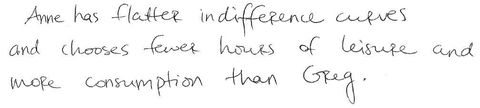 Anne has flatter indifference curves
and chooses fewer hours of leisure and
more consumption than Greg.